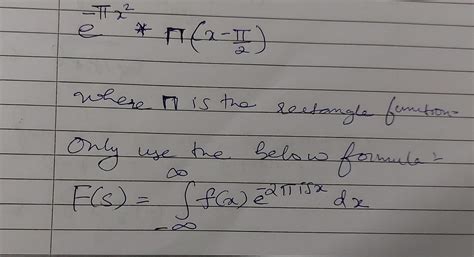 e^{-πx²} * Π(x - π/2)
where Π is the rectangle function.
Only use the below formula:
F(s) = ∫_{-∞}^{∞} f(x) e^{-2πisx} dx